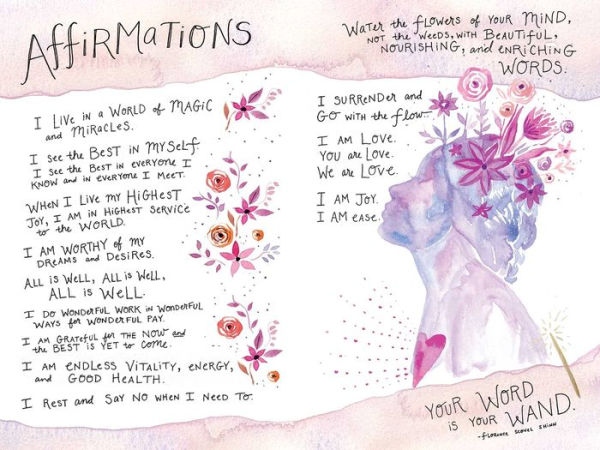 AFFIRMATIONS
I LIVE in a WORLD of MAGIC
and MIRACLES.
I see the BEST IN MYSELF.
I see the BEST IN eveRYone I
KNOW and in eveRYone I MeeT.
WHEN I Live MY HIGHEST
JOY, I AM IN HIGHEST SERVICE
to the WORLD.
I AM WORTHY of MY
DREAMS and DESIRES.
ALL is WeLL, ALL is WeLL,
ALL is WeLL.
I DO WONDERFUL WORK in WONDERFUL
WAYS for WONDERFUL PAY.
I AM GRATEFUL for THE NOW and
the BEST is YET to COME.
I AM eNDLESS VITALITY, eNeRGY,
and GOOD HEALTH.
I REST and SAY NO WHEN I NEED TO.
WATER the FLOWERS of YOUR MIND,
NOT the WeeDS, WITH BEAUTIFUL,
NOURISHING, and eNRICHING
WORDS.
I SURRENDER and
GO WITH the flow.
I AM LOVE.
YOU are LOVE.
We are LOVE.
I AM JOY.
I AM ease.
YOUR WORD
IS YOUR WAND.
-FLORENCE SCOVEL SHINN